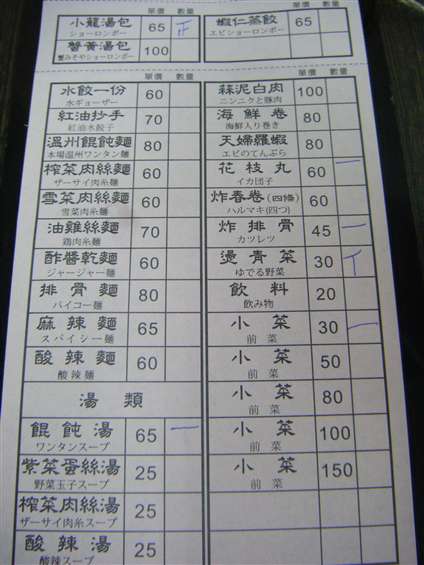 單價 數量 單價 數量
小龍湯包 65 正 蝦仁蒸餃 65
ショーロンポー エビショーロンポー
蟹黃湯包 100
蟹みそやショーロンポー
單價 數量 單價 數量
水餃一份 60 蒜泥白肉 100
水ギョーザー ニンニクと豚肉
紅油抄手 70 海鮮卷 80
紅油水餃子 海鮮入り巻き
溫州餛飩麵 80 天婦羅蝦 80
本場溫州ワンタン麺 エビのてんぷら
榨菜肉絲麵 60 花枝丸 60 一
ザーサイ肉糸麺 イカ団子
雪菜肉絲麵 60 炸春卷(四條) 60
雪菜肉糸麺 ハルマキ(四つ)
油雞絲麵 70 炸排骨 45 一
鶏肉糸麺 カツレツ
酢醬乾麵 60 燙青菜 30 丅
ジャージャー麺 ゆでる野菜
排骨麵 80 飲料 20
パイコー麺 飲み物
麻辣麵 65 小菜 30 一
スパイシー麺 前菜
酸辣麵 60 小菜 50
酸辣麺 前菜
湯類 小菜 80
前菜
餛飩湯 65 一 小菜 100
ワンタンスープ 前菜
紫菜蛋絲湯 25 小菜 150
野菜玉子スープ 前菜
榨菜肉絲湯 25
ザーサイ肉糸スープ
酸辣湯 25
酸辣スープ